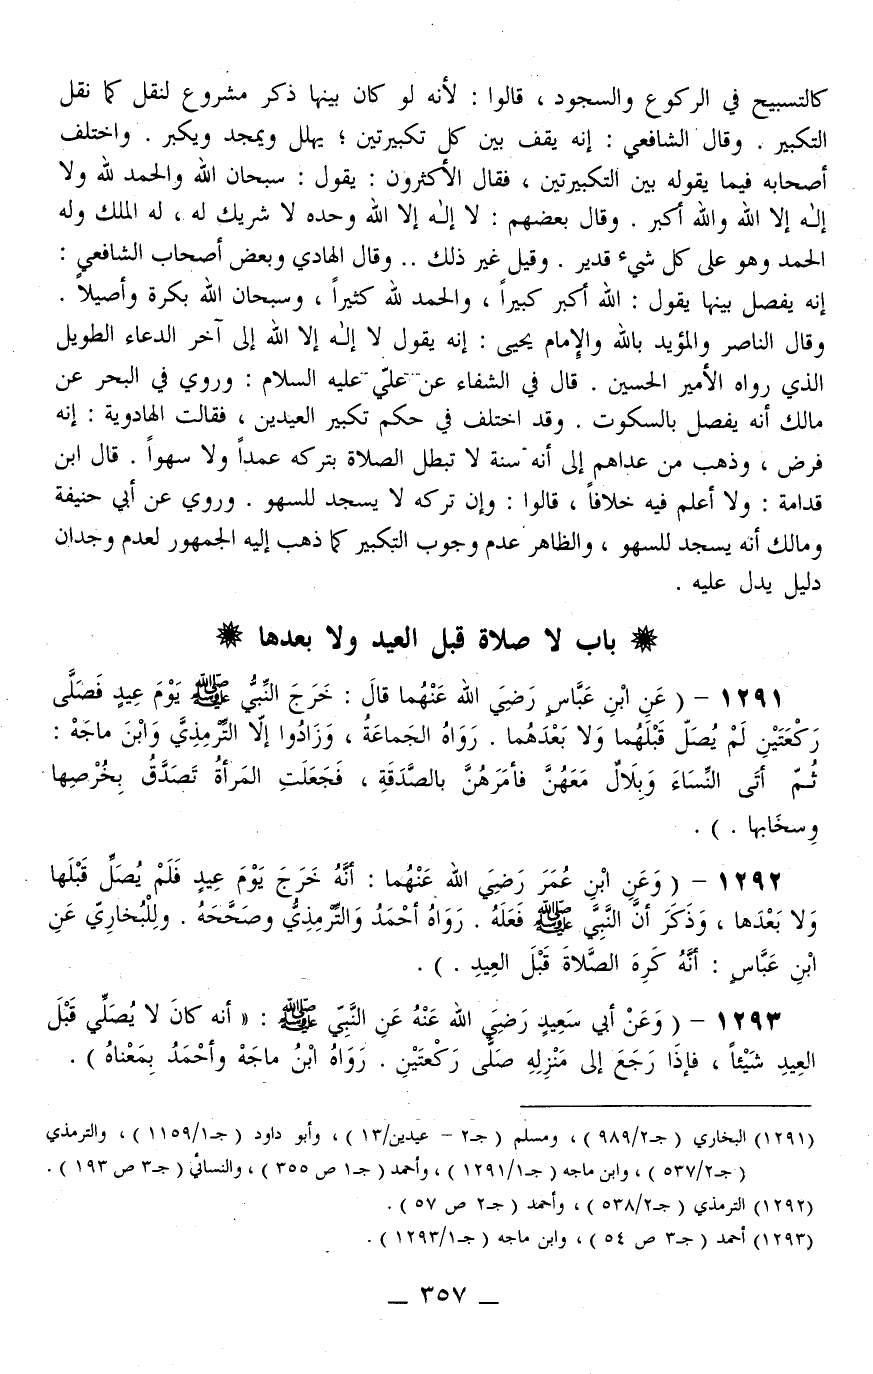 كالتسبيح في الركوع والسجود ، قالوا : لأنه لو كان بينها ذكر مشروع لنقل كما نقل
التكبير . وقال الشافعي : إنه يقف بين كل تكبيرتين ؛ يهلل ويمجد ويكبر . واختلف
أصحابه فيما يقوله بين التكبيرتين ، فقال الأكثرون : يقول : سبحان الله والحمد لله ولا
إلٰه إلا الله والله أكبر . وقال بعضهم : لا إلٰه إلا الله وحده لا شريك له ، له الملك وله
الحمد وهو على كل شيء قدير . وقيل غير ذلك .. وقال الهادي وبعض أصحاب الشافعي :
إنه يفصل بينها يقول : الله أكبر كبيراً ، والحمد لله كثيراً ، وسبحان الله بكرة وأصيلاً .
وقال الناصر والمؤيد بالله والإمام يحيى : إنه يقول لا إلٰه إلا الله إلى آخر الدعاء الطويل
الذي رواه الأمير الحسين . قال في الشفاء عن عليّ عليه السلام : وروي في البحر عن
مالك أنه يفصل بالسكوت . وقد اختلف في حكم تكبير العيدين ، فقالت الهادوية : إنه
فرض ، وذهب من عداهم إلى أنه سنة لا تبطل الصلاة بتركه عمداً ولا سهواً . قال ابن
قدامة : ولا أعلم فيه خلافاً ، قالوا : وإن تركه لا يسجد للسهو . وروي عن أبي حنيفة
ومالك أنه يسجد للسهو ، والظاهر عدم وجوب التكبير كما ذهب إليه الجمهور لعدم وجدان
دليل يدل عليه .
باب لا صلاة قبل العيد ولا بعدها
١٢٩١ - ( عَنِ ابْنِ عَبَّاسٍ رَضِيَ الله عَنْهُما قالَ : خَرَجَ النَّبِيُّ ﷺ يَوْمَ عِيدٍ فَصَلَّى
رَكْعَتَيْنِ لَمْ يُصَلّ قَبْلَهُما وَلا بَعْدَهُما . رَوَاهُ الجَماعَةُ ، وَزَادُوا إلّا التِّرْمِذِيَّ وَابْنَ ماجَهْ :
ثُمّ أتَى النِّسَاءَ وَبِلَالٌ مَعَهُنَّ فأمَرَهُنَّ بالصَّدَقَةِ ، فَجَعَلَتِ المَرأةُ تَصَدَّقُ بِخُرْصِها
وِسخَابِها . ) .
١٢٩٢ - ( وَعَنِ ابْنِ عُمَرَ رَضِيَ الله عَنْهُما : أنَّهُ خَرَجَ يَوْمَ عِيدٍ فَلَمْ يُصَلِّ قَبْلَها
وَلا بَعْدَها ، وَذَكَرَ أنَّ النَّبِيَّ ﷺ فَعَلَهُ . رَوَاهُ أحْمَدُ وَالتِّرْمِذِيُّ وصَحَّحَهُ . وللْبُخارِيّ عَنِ
ابْنِ عَبَّاسٍ : أنَّهُ كَرِهَ الصَّلاةَ قَبْلَ العِيدِ . ) .
١٢٩٣ - ( وَعَنْ أبي سَعِيدٍ رَضِيَ الله عَنْهُ عَنِ النَّبِيّ ﷺ : « أنه كانَ لا يُصَلِّي قَبْلَ
العِيدِ شَيْئاً ، فإذَا رَجَعَ إلى مَنْزِلِهِ صَلَّى رَكْعَتَيْنِ . رَوَاهُ ابْنُ ماجَهْ وأحْمَدُ بِمَعْناهُ ) .
(١٢٩١) البخاري ( جـ٩٨٩/٢ ) ، ومسلم ( جـ٢ - عيدين/١٣ ) ، وأبو داود ( جـ١١٥٩/١ ) ، والترمذي
( جـ٥٣٧/٢ ) ، وابن ماجه ( جـ١٢٩١/١ ) ، وأحمد ( جـ١ ص ٣٥٥ ) ، والنسائي ( جـ٣ ص ١٩٣ ) .
(١٢٩٢) الترمذي ( جـ٥٣٨/٢ ) ، وأحمد ( جـ٢ ص ٥٧ ) .
(١٢٩٣) أحمد ( جـ٣ ص ٥٤ ) ، وابن ماجه ( جـ١٢٩٣/١ ) .
ــ ٣٥٧ ــ